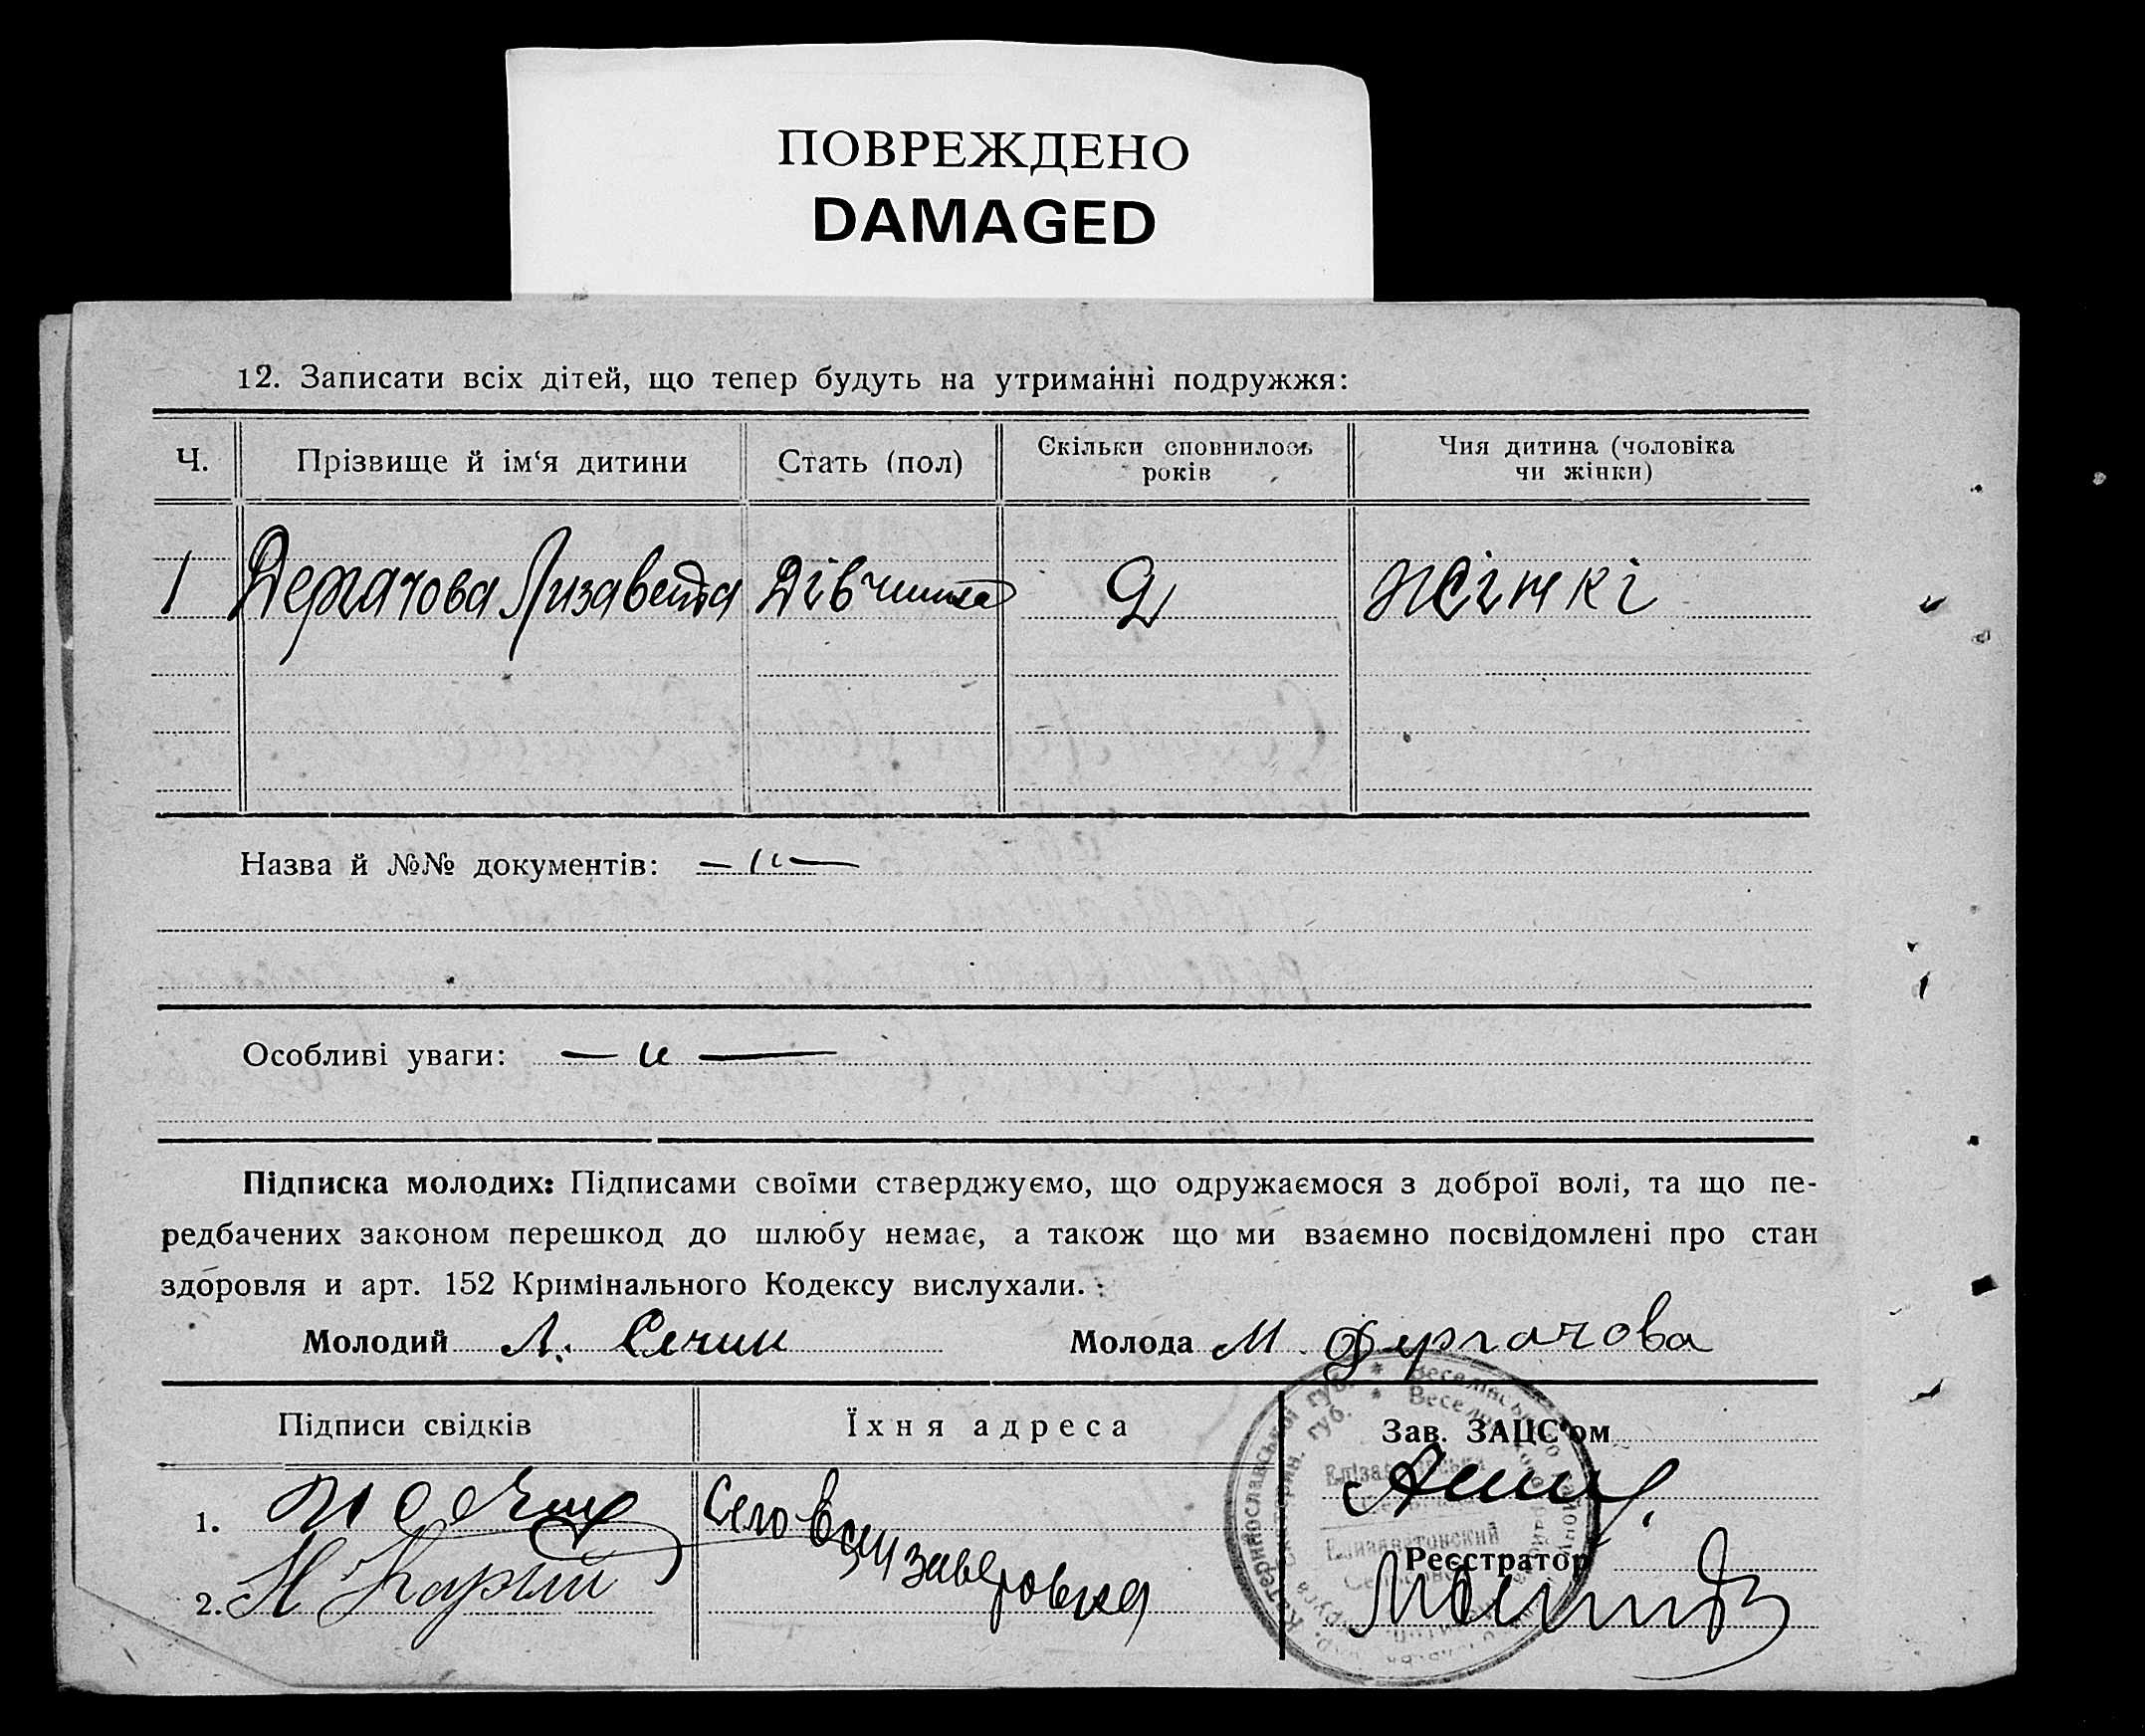 ПОВРЕЖДЕНО
DAMAGED
12. Записати всіх дітей, що тепер будуть на утриманні подружжя:
Ч. Прізвище й ім‘я дитини Стать (пол) Скільки сповнилось років Чия дитина (чоловіка чи жінки)
1 Дергачова Лизавета Дівчинка 2 жінкі
Назва й №№ документів: — „ —
Особливі уваги: — „ —
Підписка молодих: Підписами своїми стверджуємо, що одружаємося з доброї волі, та що пе-
редбачених законом перешкод до шлюбу немає, а також що ми взаємно посвідомлені про стан
здоровля и арт. 152 Кримінального Кодексу вислухали.
Молодий Л. Сечин Молода М. Дергачова
Підписи свідків Їхня адреса Зав. ЗАЦС'ом
1. село
2. Н
Реєстратор